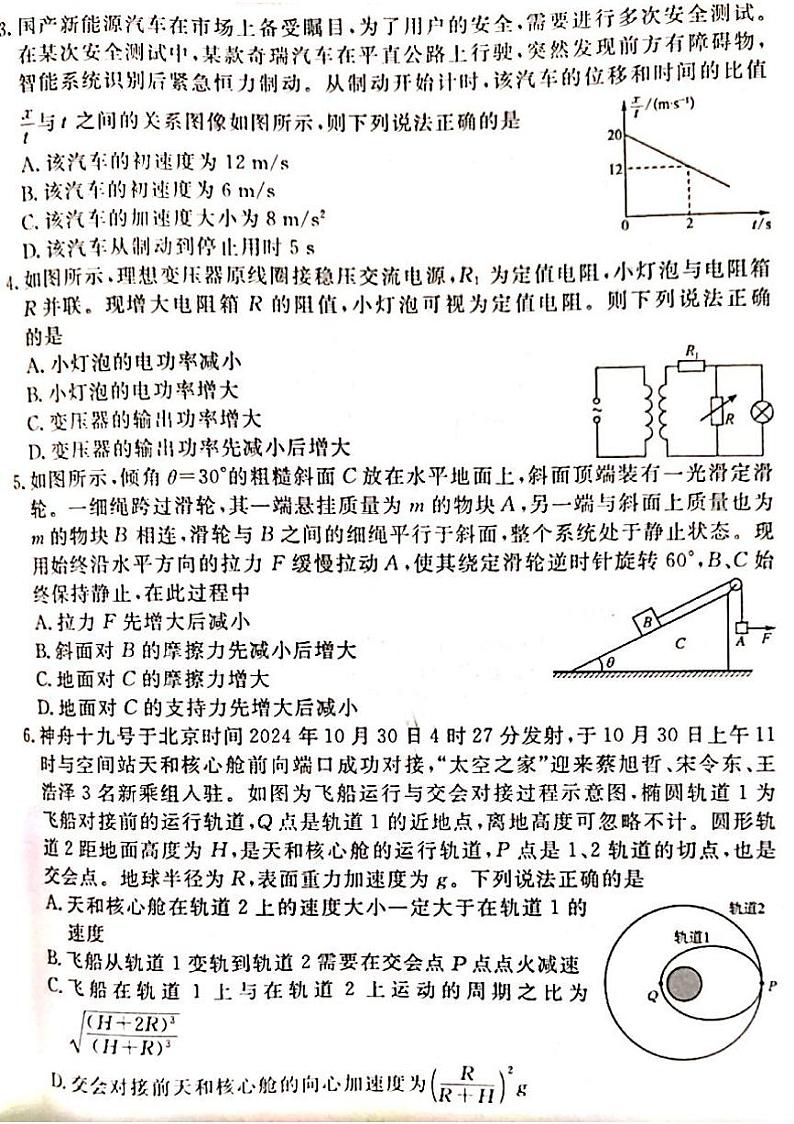 3.国产新能源汽车在市场上备受瞩目,为了用户的安全,需要进行多次安全测试。
在某次安全测试中,某款奇瑞汽车在平直公路上行驶,突然发现前方有障碍物,
智能系统识别后紧急恒力制动。从制动开始计时,该汽车的位移和时间的比值
x/t 与 t 之间的关系图像如图所示,则下列说法正确的是
x/t/(m·s⁻¹)
20
12
0
2
t/s
A.该汽车的初速度为 12 m/s
B.该汽车的初速度为 6 m/s
C.该汽车的加速度大小为 8 m/s²
D.该汽车从制动到停止用时 5 s
4.如图所示,理想变压器原线圈接稳压交流电源,R₁ 为定值电阻,小灯泡与电阻箱
R 并联。现增大电阻箱 R 的阻值,小灯泡可视为定值电阻。则下列说法正确
的是
A.小灯泡的电功率减小
B.小灯泡的电功率增大
C.变压器的输出功率增大
D.变压器的输出功率先减小后增大
R₁
R
~
5.如图所示,倾角 θ=30°的粗糙斜面 C 放在水平地面上,斜面顶端装有一光滑定滑
轮。一细绳跨过滑轮,其一端悬挂质量为 m 的物块 A,另一端与斜面上质量也为
m 的物块 B 相连,滑轮与 B 之间的细绳平行于斜面,整个系统处于静止状态。现
用始终沿水平方向的拉力 F 缓慢拉动 A,使其绕定滑轮逆时针旋转 60°,B、C 始
终保持静止,在此过程中
A.拉力 F 先增大后减小
B.斜面对 B 的摩擦力先减小后增大
C.地面对 C 的摩擦力增大
D.地面对 C 的支持力先增大后减小
B
C
A
F
θ
6.神舟十九号于北京时间 2024 年 10 月 30 日 4 时 27 分发射,于 10 月 30 日上午 11
时与空间站天和核心舱前向端口成功对接,“太空之家”迎来蔡旭哲、宋令东、王
浩泽 3 名新乘组入驻。如图为飞船运行与交会对接过程示意图,椭圆轨道 1 为
飞船对接前的运行轨道,Q 点是轨道 1 的近地点,离地高度可忽略不计。圆形轨
道 2 距地面高度为 H,是天和核心舱的运行轨道,P 点是 1、2 轨道的切点,也是
交会点。地球半径为 R,表面重力加速度为 g。下列说法正确的是
A.天和核心舱在轨道 2 上的速度大小一定大于在轨道 1 的
速度
B.飞船从轨道 1 变轨到轨道 2 需要在交会点 P 点点火减速
C.飞船在轨道 1 上与在轨道 2 上运动的周期之比为
√((H+2R)³/(H+R)³)
D.交会对接前天和核心舱的向心加速度为(R/(R+H))²g
轨道2
轨道1
Q
P